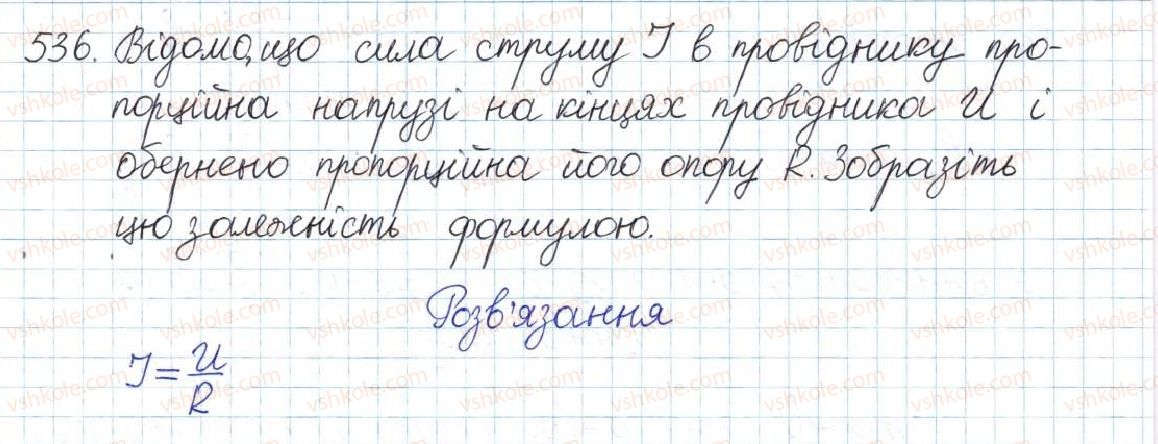 536. Відомо, що сила струму I в провіднику про-
порційна напрузі на кінцях провідника U і
обернено пропорційна його опору R. Зобразіть
цю залежність формулою.
Розв'язання
I = U/R